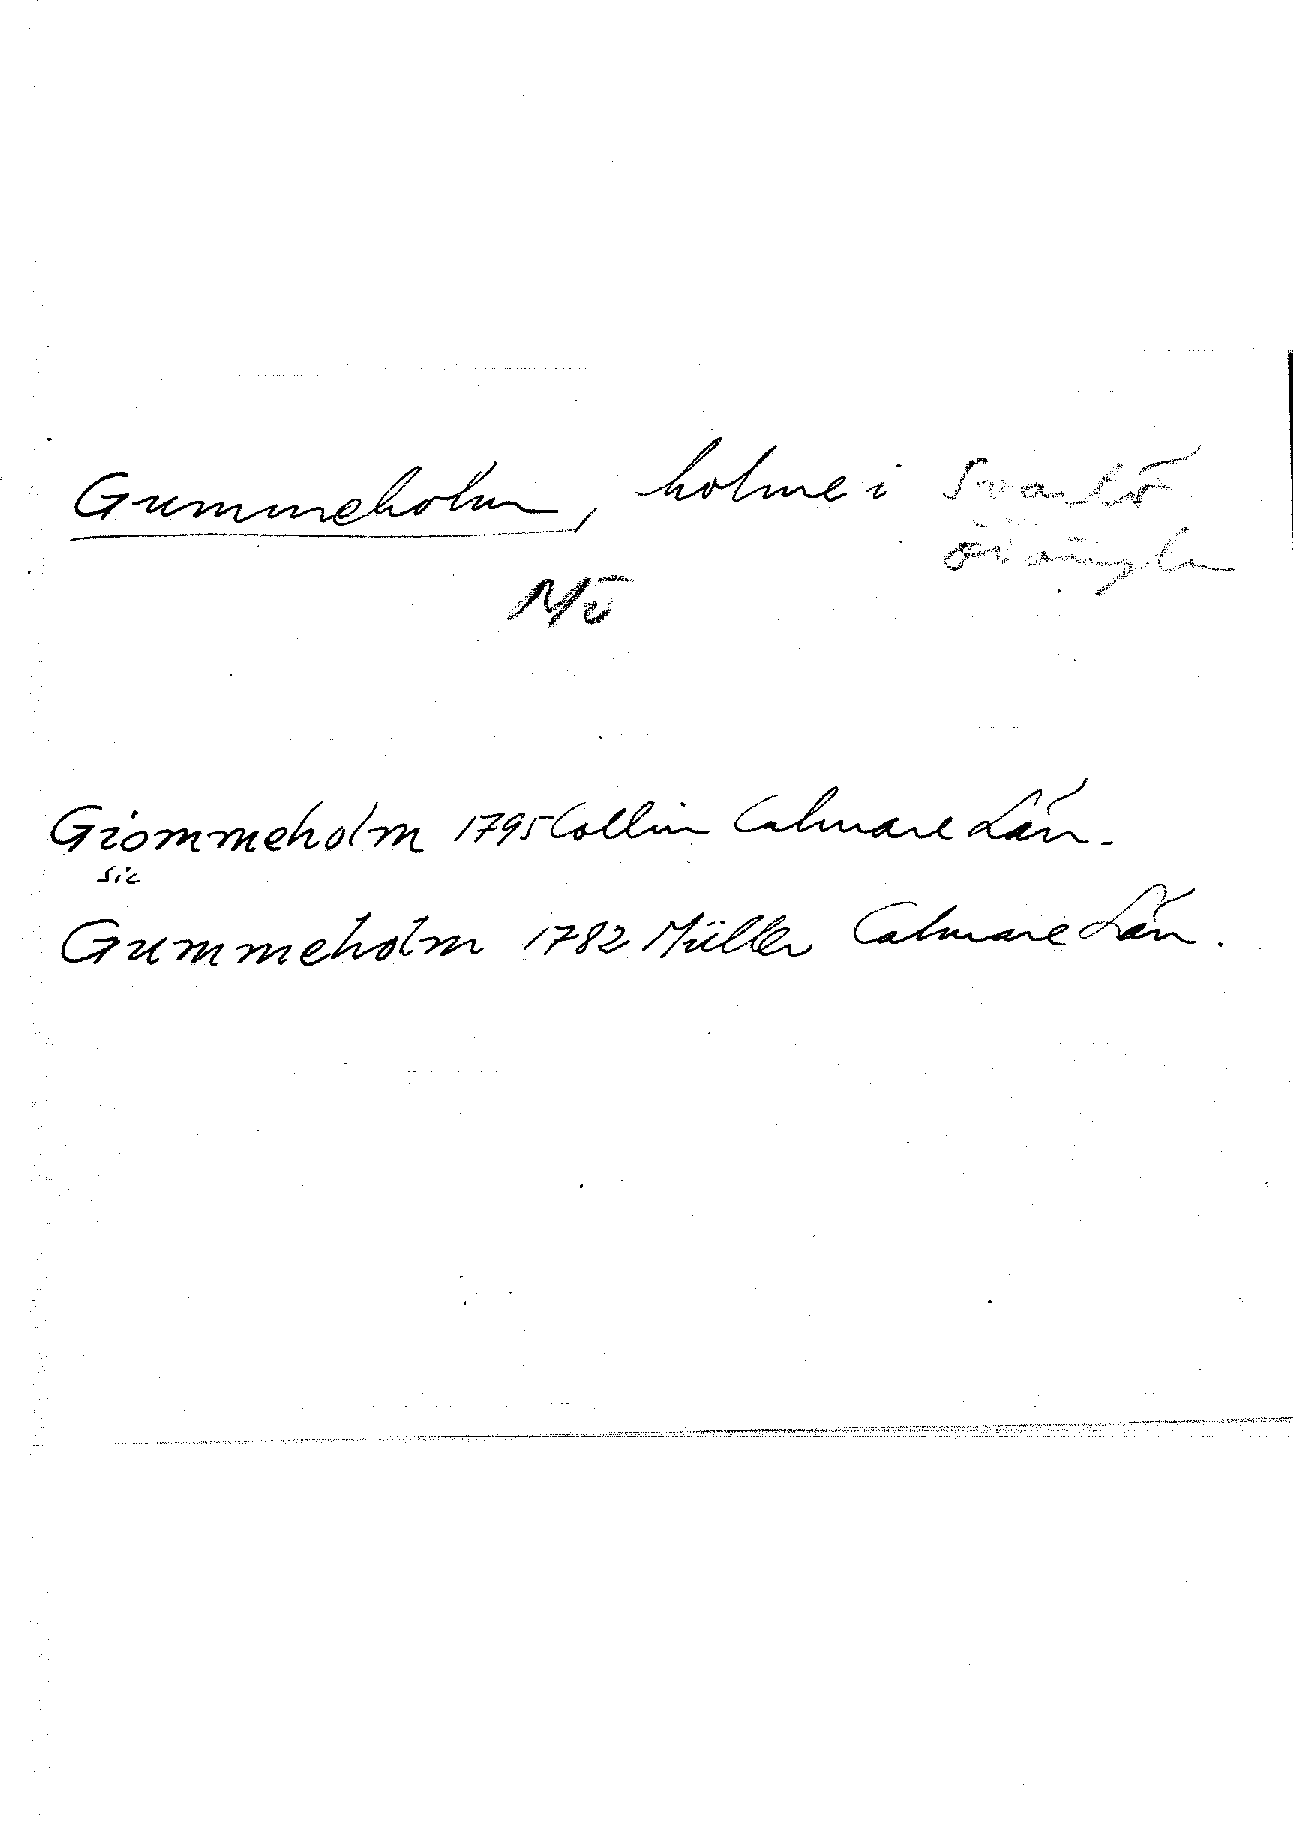 Gummeholm, holme i Svartö
Mö
Giommeholm 1795 Collin Calmare Län.
sic
Gummeholm 1782 Müller Calmare Län.